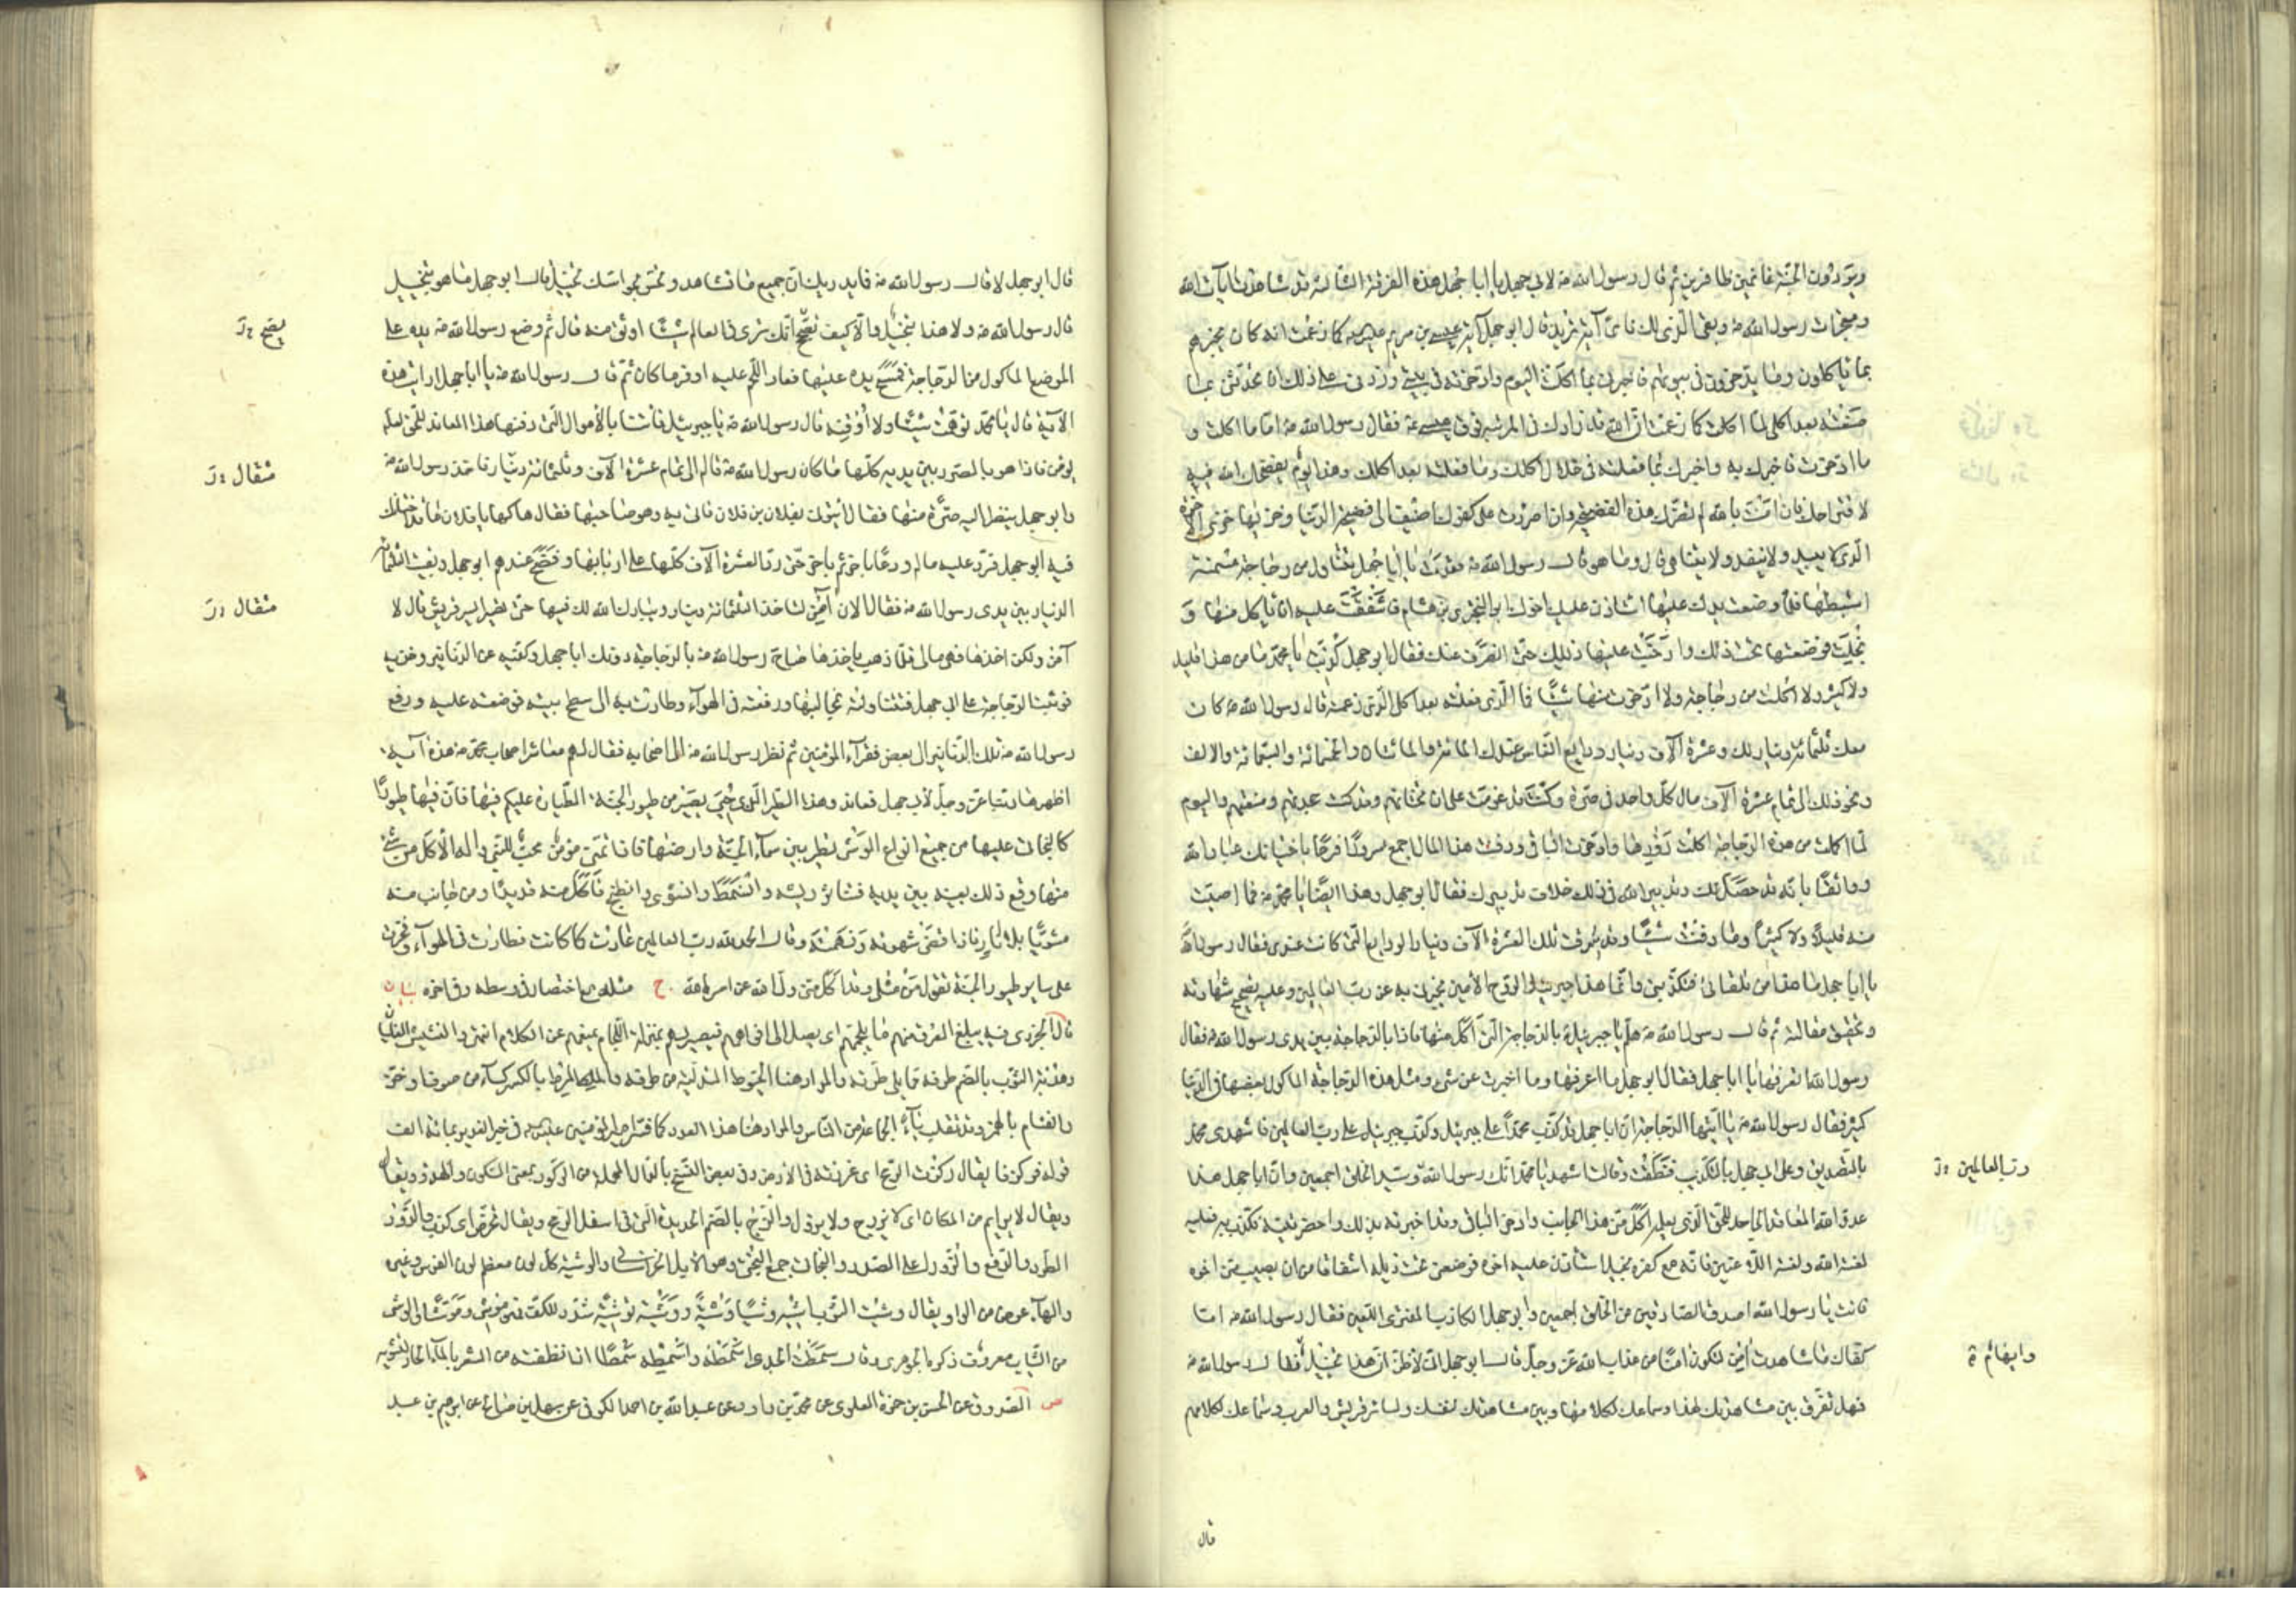 ويوردون الجنة غانمين ظافرين ثم قال رسول الله ص لابي جهل يا ابا جهل هذه الفرقة الثالثة قد شاهدت آيات الله
ومعجزات رسول الله ص وبقى الذى لك فاى آية تريد قال ابو جهل آية عيسى بن مريم كما زعمت انه كان يخبرهم
بما ياكلون وما يدخرون فى بيوتهم فاخبرنى بما اكلت اليوم وما ادخرته فى بيتى وزدنى على ذلك ان تحدثنى بما
صنعته بعد اكلى لما اكلت كما زعمت ان الله قد زادك فى المرتبة فوق عيسى فقال رسول الله ص اما ما اكلت و
ما ادخرت فاخبرك به واخبرك بما فعلته فى خلال اكلك وما فعلته بعد اكلك وهذا يوم يفضحك الله فيه
لاقتراحك فان آمنت بالله لم تضرك هذه الفضيحة وان اصررت على كفرك اضيف الى فضيحة الدنيا وخزيها خزى الآخرة
الذى لا يبيد ولا ينفد ولا يتناهى قال وما هو قال رسول الله ص قعدت يا ابا جهل تتناول من دجاجة مسمنة
استطبتها فلما وضعت يدك عليها استاذن عليك اخوك ابو البخترى بن هشام فاشفقت عليه ان ياكل منها و
بخلت فوضعتها تحت ذيلك وارخيت عليها ذيلك حتى انصرف عنك فقال ابو جهل كذبت يا محمد ما من هذا قليل
ولا كثير ولا اكلت من دجاجة ولا ادخرت منها شيئا فما الذى فعلته بعد اكلى الذى زعمته قال رسول الله ص كان
معك ثلثمائة دينار لك وعشرة آلاف دينار ودايع الناس عندك المائة والمائتان والخمسمائة والسبعمائة والالف
ونحو ذلك الى تمام عشرة آلاف مال كل واحد فى صرة وكنت قد عزمت على ان تختانهم وقد كنت جحدتهم ومنعتهم واليوم
لما اكلت من هذه الدجاجة اكلت زورها وادخرت الباقى ودفنت هذا المال اجمع مسرورا فرحا باختيانك عباد الله
وواثقا بانه قد حصل لك وتدبير الله فى ذلك خلاف تدبيرك فقال ابو جهل وهذا ايضا يا محمد ص فما اصبت
منه قليلا ولا كثيرا وما دفنت شيئا وقد سرقت تلك العشرة الآلاف دينار الودايع التى كانت عندى فقال رسول الله
يا ابا جهل ما هذا من تلقائى فتكذبنى وانما هذا جبرئيل الروح الامين يخبرنى به عن رب العالمين وعليه تصحيح شهادته
وتحقيق مقالته ثم قال رسول الله ص هلم يا جبرئيل بالدجاجة التى اكل منها فاذا بالدجاجة بين يدى رسول الله ص فقال
رسول الله اتعرفها يا ابا جهل فقال ابو جهل ما اعرفها وما اخبرت عن شىء ومثل هذه الدجاجة الماكول بعضها فى الدنيا
كثير فقال رسول الله ص يا ايتها الدجاجة ان ابا جهل قد كذب محمدا على جبرئيل وكذب جبرئيل على رب العالمين فاشهدى لمحمد
بالتصديق وعلى ابى جهل بالتكذيب فنطقت وقالت اشهد يا محمد انك رسول الله وسيد الخلق اجمعين وان ابا جهل هذا
رب العالمين
عدو الله المعاند الجاحد للحق الذى يعلمه اكل منى هذا الجانب وادخر الباقى وقد اخبرته بذلك واحضرتنيه فكذب به فعليه
لعنة الله ولعنة اللاعنين فانه مع كفره بخيل استاذن عليه اخوه فوضعنى تحت ذيله اشفاقا من ان يصيب منى اخوه
فانت يا رسول الله اصدق الصادقين من الخلق اجمعين وابو جهل الكاذب المفترى اللعين فقال رسول الله ص اما
كفاك ما شاهدت آمن لتكون آمنا من عذاب الله عز وجل قال ابو جهل انى لاظن ان هذا تخييل وايهام فقال رسول الله ص
وايهام
فهل تفرق بين مشاهدتك لهذا وسماعك لكلامها وبين مشاهدتك لنفسك ولسائر قريش والعرب وسماعك كلامهم
قال
قال ابو جهل لا قال رسول الله ص فما يدريك ان جميع ما تشاهد وتحس بحواسك تخييل قال ابو جهل ما هو بتخييل
قال رسول الله ص ولا هذا بتخييل والا كيف تصحح انك ترى فى العالم شيئا اوثق منه قال ثم وضع رسول الله ص يده على
يصح
الموضع الماكول من الدجاجة فمسح يده عليها فعاد اللحم عليه اوفر ما كان ثم قال رسول الله ص يا ابا جهل ارايت هذه
الآية قال يا محمد توهمت شيئا ولا اوقنه قال رسول الله ص يا جبرئيل فاتنا بالاموال التى دفنها هذا المعاند للحق لعله
يؤمن فاذا هو بالصرر بين يديه كلها ما كان رسول الله ص قاله الى تمام عشرة آلاف وثلثمائة دينار فاخذ رسول الله ص
مثقال
وابو جهل ينظر اليه صرة منها فقال ائتونى بفلان بن فلان فاتى به وهو صاحبها فقال هاكها يا فلان ما قد اختانك
فيه ابو جهل فرد عليه ماله ودعا بآخر ثم بآخر حتى رد العشرة الآلاف كلها على اربابها وفضح عندهم ابو جهل وبقيت الثلثمائة
الدينار بين يدى رسول الله ص فقال الآن آمن لتاخذ الثلثمائة دينار ويبارك الله لك فيها حتى تصير ايسر قريش قال لا
مثقال
آمن ولكن آخذها فهى مالى فلما ذهب ياخذها صاح رسول الله ص بالدجاجة دونك ابا جهل وكفيه عن الدنانير وخذيه
فوثبت الدجاجة على ابى جهل فتناولته بمخالبها ورفعته فى الهواء وطارت به الى سطح بيته فوضعته عليه ودفع
رسول الله ص تلك الدنانير الى بعض فقراء المؤمنين ثم نظر رسول الله ص الى اصحابه فقال لهم معاشر اصحاب محمد ص هذه آية
اظهرها ربنا عز وجل لابى جهل فعاند وهذا الطير الذى حيى يصير من طيور الجنة الطيارة عليكم فيها فان فيها طيورا
كالبخاتى عليها من جميع انواع الوشى تطير بين سماء الجنة وارضها فاذا تمنى مؤمن محب للنبى وآله الاكل من شىء
منها وقع ذلك بعينه بين يديه فتناثر ريشه وانشمط وانشوى وانطبخ فاكل منه قديدا ومن جانب منه
مشويا بلا نار فاذا قضى شهوته ونهمته وقال الحمد لله رب العالمين عادت كما كانت فطارت فى الهواء وفخرت
على ساير طيور الجنة تقول من مثلى وقد اكل منى ولى الله عن امر الله ج مثله مع اختصار فى وسطه وفى آخره بيان
قال الجزرى فيه يبلغ العرق منهم ما يلجمهم اى يصل الى افواههم فيصير لهم بمنزلة اللجام يمنعهم عن الكلام انتهى والنشيش الغليان
وهدبة الثوب بالضم طرفه مما يلى طرته والمراد هنا الخيوط المتدلية من طرفه والمرط بالكسر كساء من صوف او خز
والفئام بالهمز وقد تقلب ياء الجماعة من الناس والمراد هنا هذا العدد كما فسر امير المؤمنين عليه السلم فى خبر الغدير بمائة الف
قوله فركزها يقال ركزت الرمح اى غرزته فى الارض وفى بعض النسخ بالدال المهملة من الركود بمعنى السكون والهدو ويقال
ويقال لا يرايم من المكان اى لا يبرح ولا يزول والزج بالضم الحديدة التى فى اسفل الرمح ويقال تخرص اى كذب والزور
الطرد والدفع والزور اعلى الصدر والبخاتى جمع البختى وهو الابل الخراسانى والوشية كل لون يخالف معظم لون الفرس وغيره
والهاء عوض من الواو يقال وشيت الثوب اشيه وشيا وشية ووشيته توشية شدد للكثرة فهو موشى وموشى والوشى
من الثياب معروف ذكره الجوهرى وقال سمطت الجدى اسمطه واسمطه سمطا اذا نظفته من الشعر بالماء الحار لتشويه
ص الصدوق عن الحسن بن حمزة العلوى عن محمد بن داود عن عبد الله بن احمد الكوفى عن سهل بن صالح عن ابراهيم بن عبد